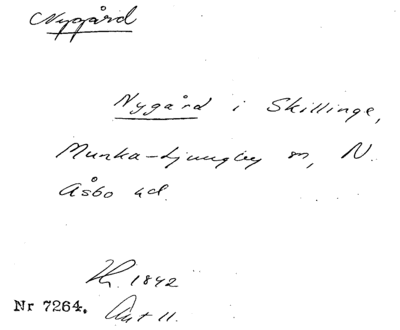 Nygård
Nygård i Skillinge,
Munka-Ljungby sn, N.
Åsbo hd.
1842
Nr 7264. Ant 11.